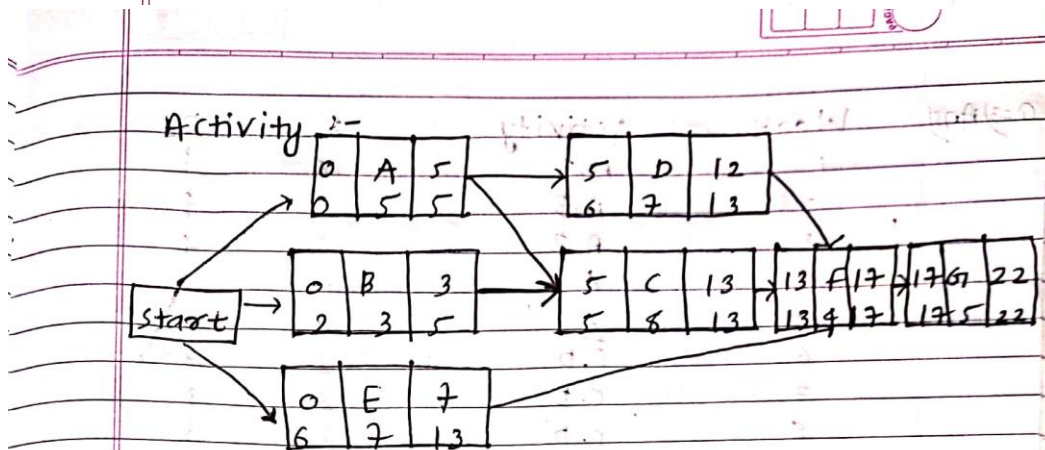 Activity :-
0 A 5
0 5 5
5 D 12
6 7 13
Start
0 B 3
2 3 5
5 C 13
5 8 13
13 F 17
13 4 17
17 G 22
17 5 22
0 E 7
6 7 13